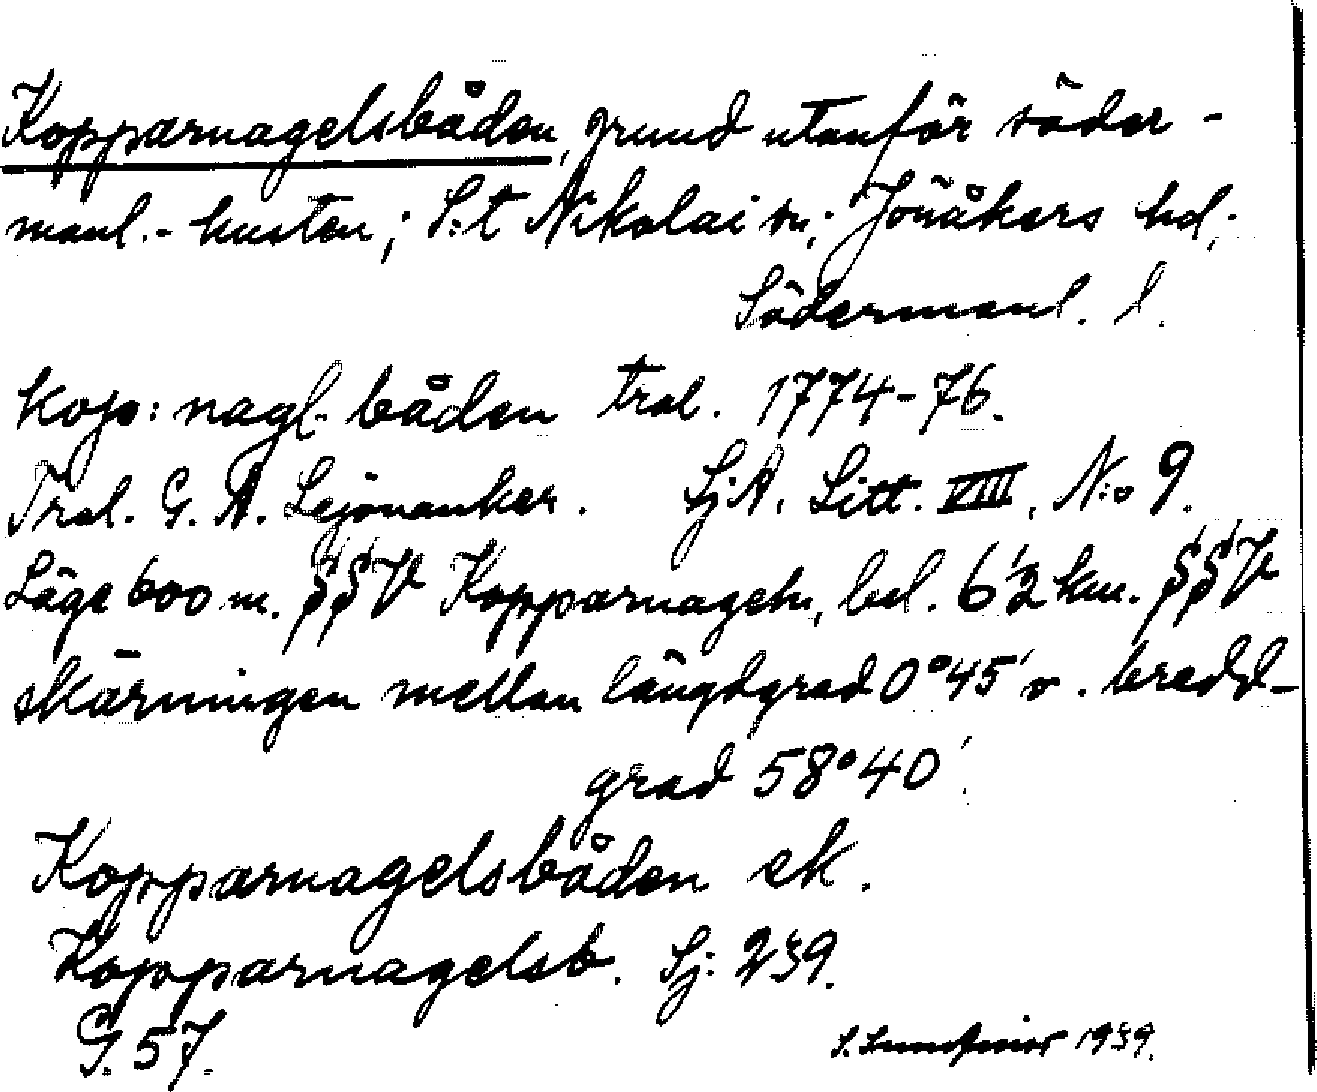 Kopparnagelsbåden, grund utanför söder-
manl.-kusten; S:t Nikolai sn; Jönåkers hd;
Södermanl. l.
Kop: nagl-båden tral. 1774-76.
Tral. G. A. Lejonanker. SjA. Litt. VIII, N:o 9.
Läge 600 m. SSV Kopparnageln, bel. 6 1/2 km. SSV
skärningen mellan längdgrad 0°45' o. bredd-
grad 58°40'.
Kopparnagelsbåden ek.
Kopparnagelsb. Sj: 239.
G. 57. 1939.